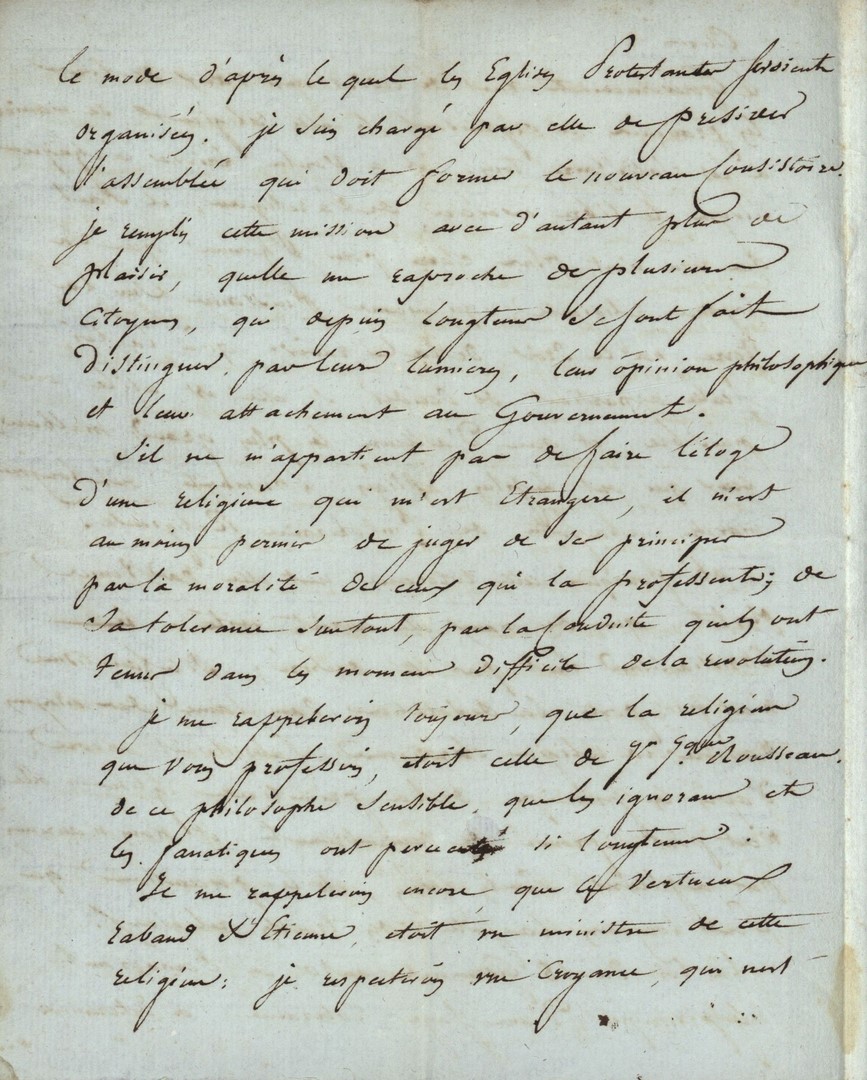 le mode d'après le quel les Eglises Protestantes seroient
organisées. je suis chargé par elle de présider
l'assemblée qui doit former le nouveau Consistoire.
je remplis cette mission avec d'autant plus de
plaisir, quelle me raproche de plusieurs
Citoyens, qui depuis longtems se sont fait
Distinguer par leurs lumieres, leur opinion philosophique
et leur attachement au Gouvernement.
S'il ne m'appartient pas de faire l'éloge
D'une religion qui m'est Etrangere, il m'est
au moins permis de juger de ses principes
par la moralité de ceux qui la professent; de
sa tolerance surtout, par la Conduite qu'ils ont
tenus dans les momens difficile de la revolution.
je me rappelerois toujours, que la religion
que vous professés, etoit celle de Jn Jques Rousseau.
de ce philosophe sensible, que les ignorans et
les fanatiques ont persecuté si longtems.
Je me rappelerois encore, que le Vertueux
Rabaud St Etienne, etoit un ministre de cette
religion: je respecterois une Croyance, qui n'est